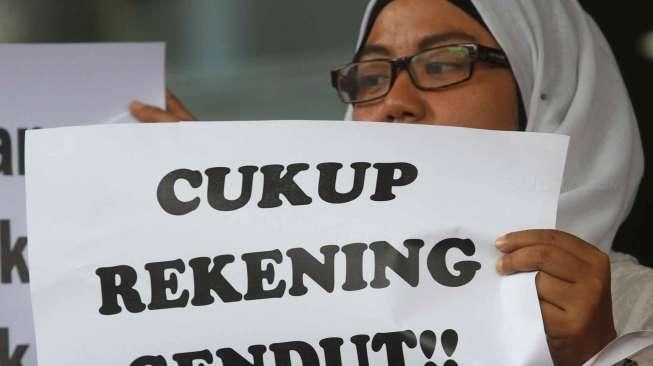 CUKUP
REKENING
GENDUT!!
SUARA.COM